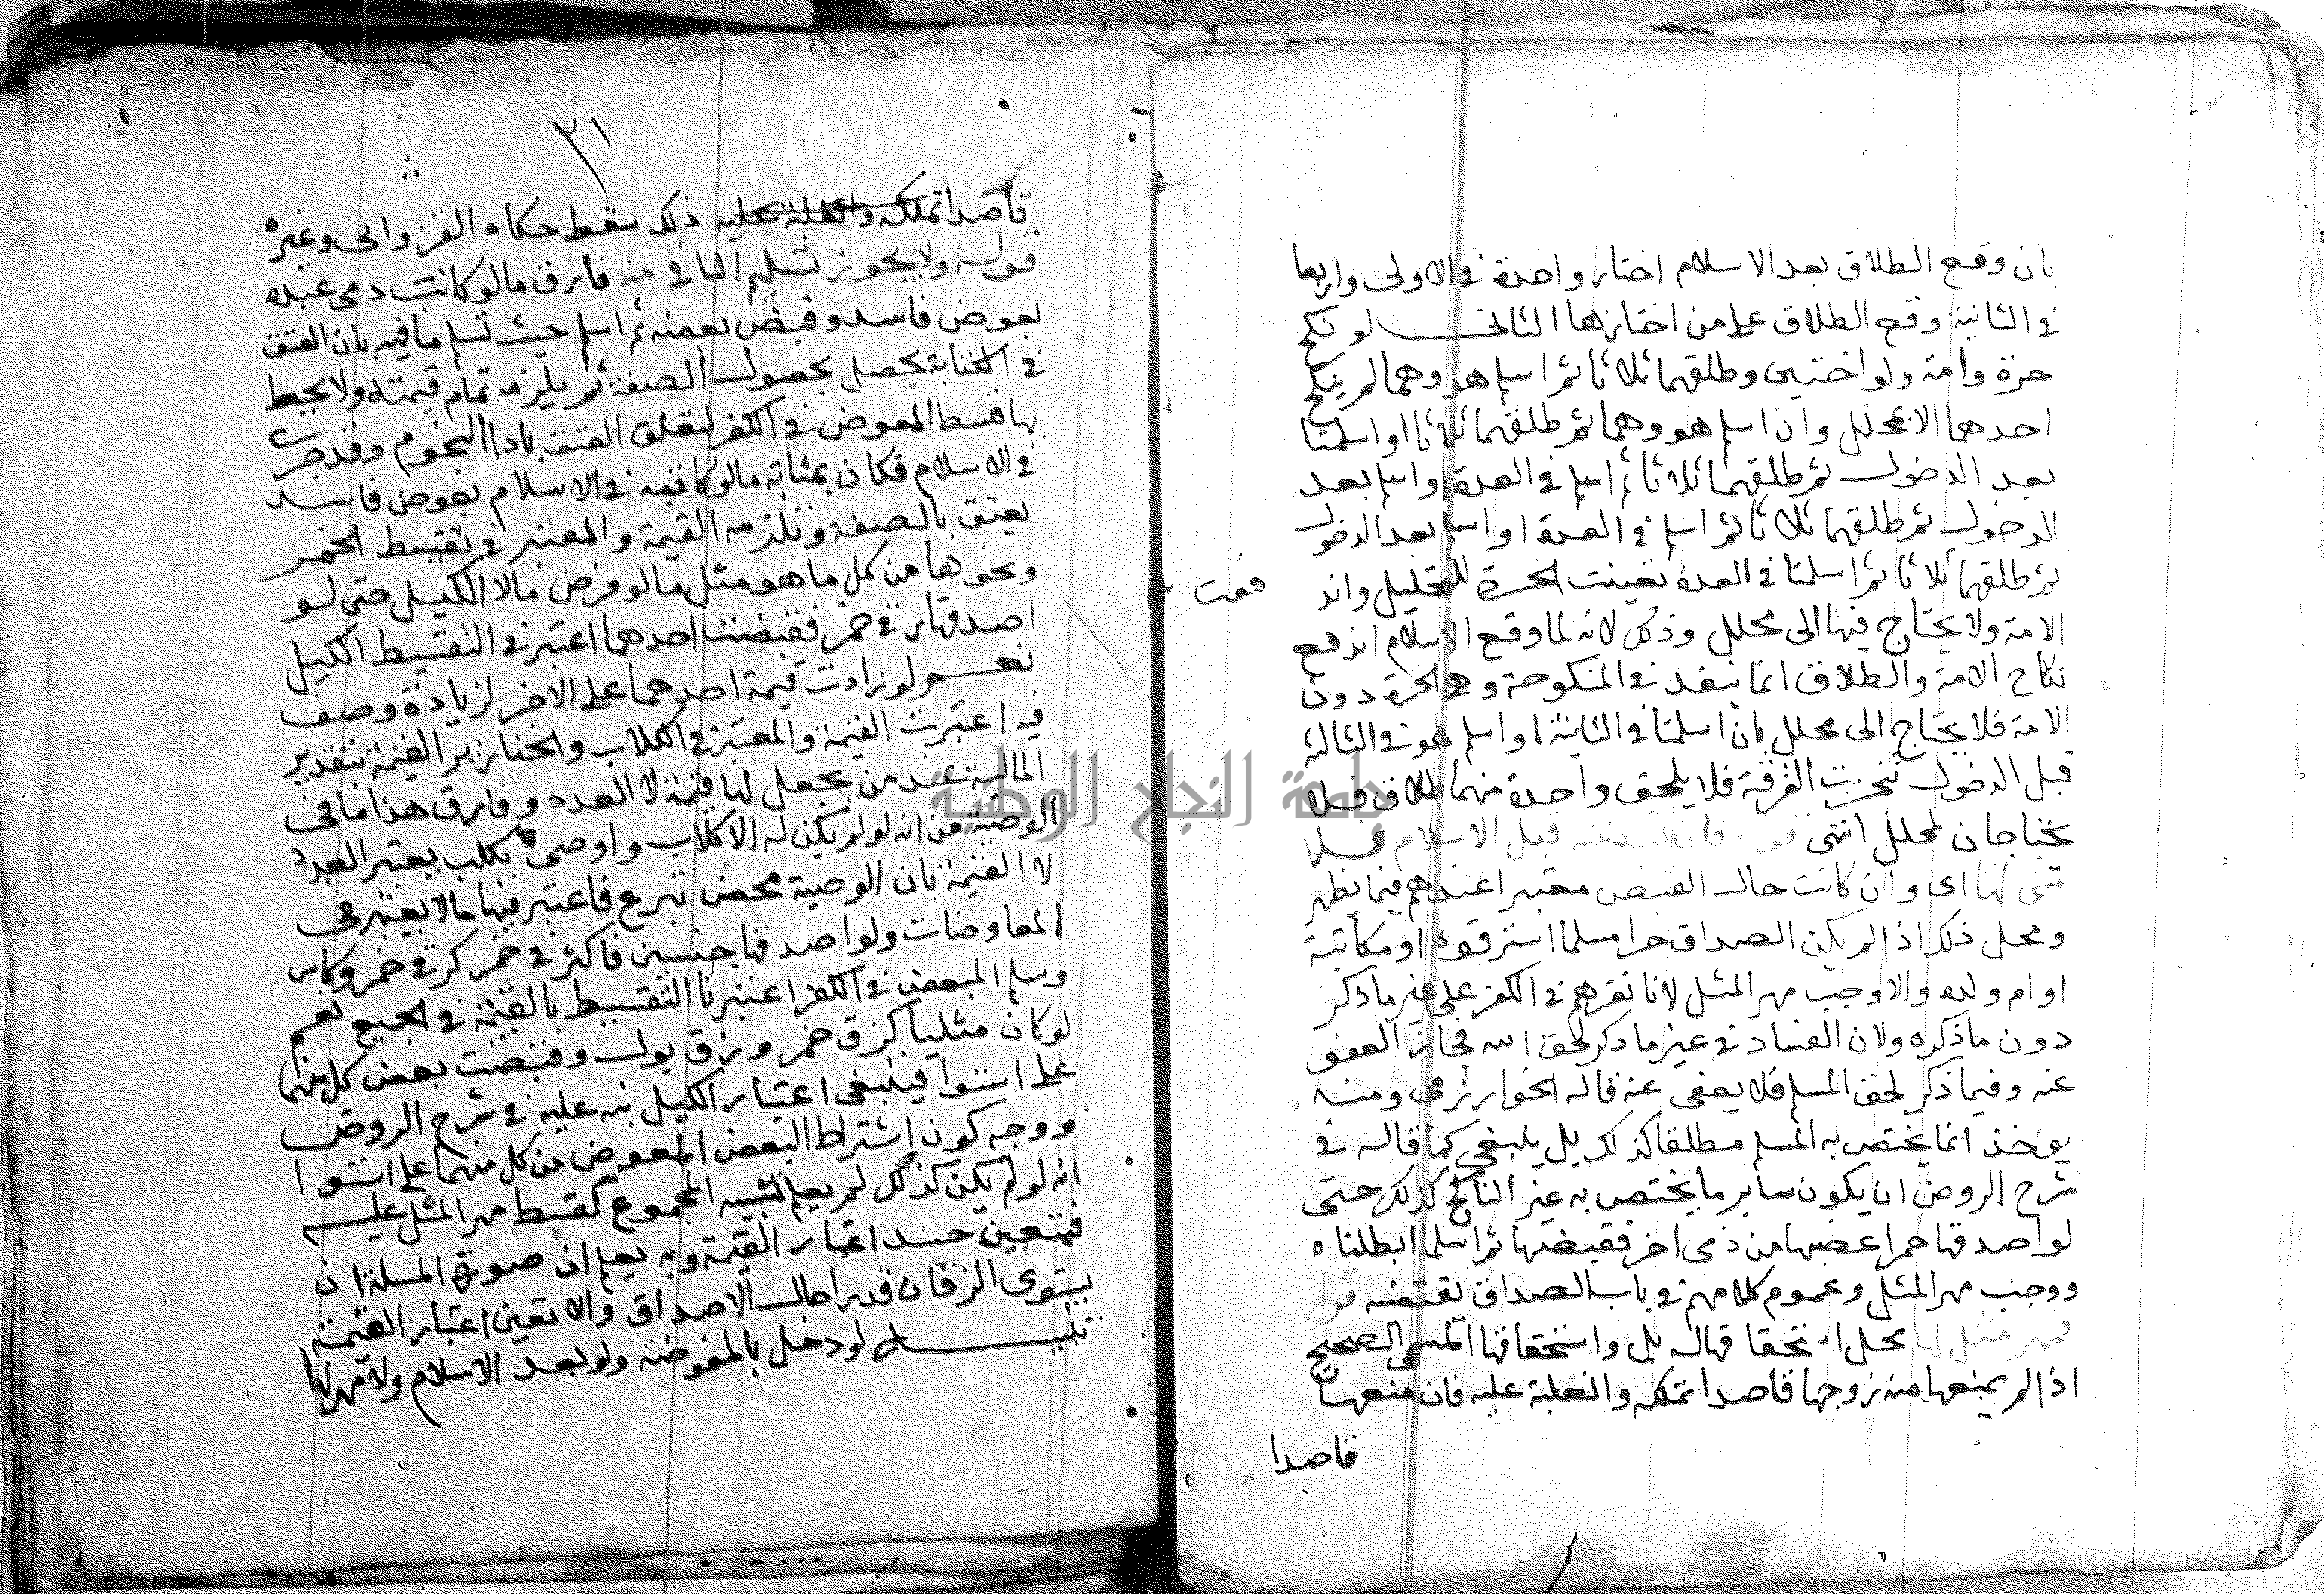 بان وقع الطلاق بعد الاسلام اختار واحدة في الاولى واربعا
في الثانية وقع الطلاق على من اختارها الثاني لو نكح
حرة وامة ولو اختين وطلقهما ثلاثا ثم اسلم هو وهما لم ينكح
احدهما الا بمحلل وان اسلم هو وهما ثم طلقهما ثلاثا او اسلمتا
بعد الدخول ثم طلقهما ثلاثا ثم اسلم في العدة او اسلم بعد
الدخول ثم طلقهما ثلاثا ثم اسلم في العدة او اسلم بعد الدخول
ثم طلقهما ثلاثا ثم اسلمتا في العدة تعينت الحرة للتحليل واند فعت
الامة ولا يحتاج فيها الى محلل وذلك لانه لما وقع الاسلام اندفع
نكاح الامة والطلاق انما ينفذ في المنكوحة وهي الحرة دون
الامة فلا يحتاج الى محلل بان اسلمتا في الثانية او اسلم هو في الثالثة
قبل الدخول تنجزت الفرقة فلا يلحق واحدة منهما طلاق فلا
يحتاجان لمحلل انتهى قبل الاسلام فلا
شي لها اي وان كانت حال القبض معتبرا عندهم فيما يظهر
ومحل ذلك اذا لم يكن الصداق حرا مسلما استرقوه او مكاتبة
او ام ولده والا وجب مهر المثل لانا نقرهم في الكفر على غير ما ذكر
دون ما ذكره ولان الفساد في غير ما ذكر لحق الله فجاز العفو
عنه وفيما ذكر لحق المسلم فلا يعفى عنه قاله الخوارزمي ومنه
يوخذ انما يختص به المسلم مطلقا كذلك بل ينبغي كما قاله في
شرح الروض ان يكون ساير ما يختص به غير الناكح كذلك حتى
لو اصدقها خمرا غصبها من ذمي اخر فقبضتها ثم اسلما ابطلناه
ووجب مهر المثل وعموم كلامهم في باب الصداق يقتضيه قوله
فمهر مثل لها محل استحقاقها له بل واستحقاقها المسمى الصحيح
اذا لم يمنعها منه زوجها قاصدا تملكه والغلبة عليه فان منعها
قاصدا
٢١
قاصدا تملكه والغلبة عليه ذلك سقط حكاه الفزواني وغيره
قوله ولا يجوز تسليم الباقي منه فارق ما لو كاتب ذمي عبده
بعوض فاسد وقبض بعضه ثم اسلم حيث تسلم ما فيه بان العتق
في الكتابة يحصل بحصول الصفة ثم يلزمه تمام قيمته ولا يحط
بها قسط المعوض في الكفر لتعلق العتق باداء النجوم وقد جرى
في الاسلام فكان بمثابة ما لو كاتبه في الاسلام بعوض فاسد
يعتق بالصفة وتلزمه القيمة والمعتبر في تقسيط الخمر
ونحوها من كل ما هو مثل ما لو فرض مالا الكيل حتى لو
اصدقها زقي خمر فقبضت احدهما اعتبر في التقسيط الكيل
نعم لو زادت قيمة احدهما على الاخر لزيادة وصف
فيه اعتبرت القيمة والمعتبر في الكلاب والخنازير القيمة بتقدير
المالية عند من يجعل لها قيمة لا العدد وفارق هذا ما في
الوصية من انه لو لم يكن له الا كلاب واوصى بكلب يعتبر العدد
لا القيمة بان الوصية محض تبرع فاعتبر فيها ما لا يعتبر في
المعاوضات ولو اصدقها جنسين فاكثر في خمر كزقي خمر وكلب
وسلم البعض في الكفر اعتبرنا التقسيط بالقيمة في الجميع نعم
لو كان مثليا كزق خمر وزق بول وقبضت بعض كل منهما
على استوا فينبغي اعتبار الكيل نبه عليه في شرح الروض
ووجه كون اشتراط البعض المعوض من كل منهما على استوا
انه لو لم يكن كذلك لم يعلم نسبة المجموع كقسط مهر المثل عليه
فيتعين حينئذ اعتبار القيمة وبه يعلم ان صورة المسئلة ان
يستوي الزقان قدرا حال الاصداق والا تعين اعتبار القيمة
تنبيه لو دخل بالمفوضة ولو بعد الاسلام ولا مهر لها
جامعة النجاح الوطنية